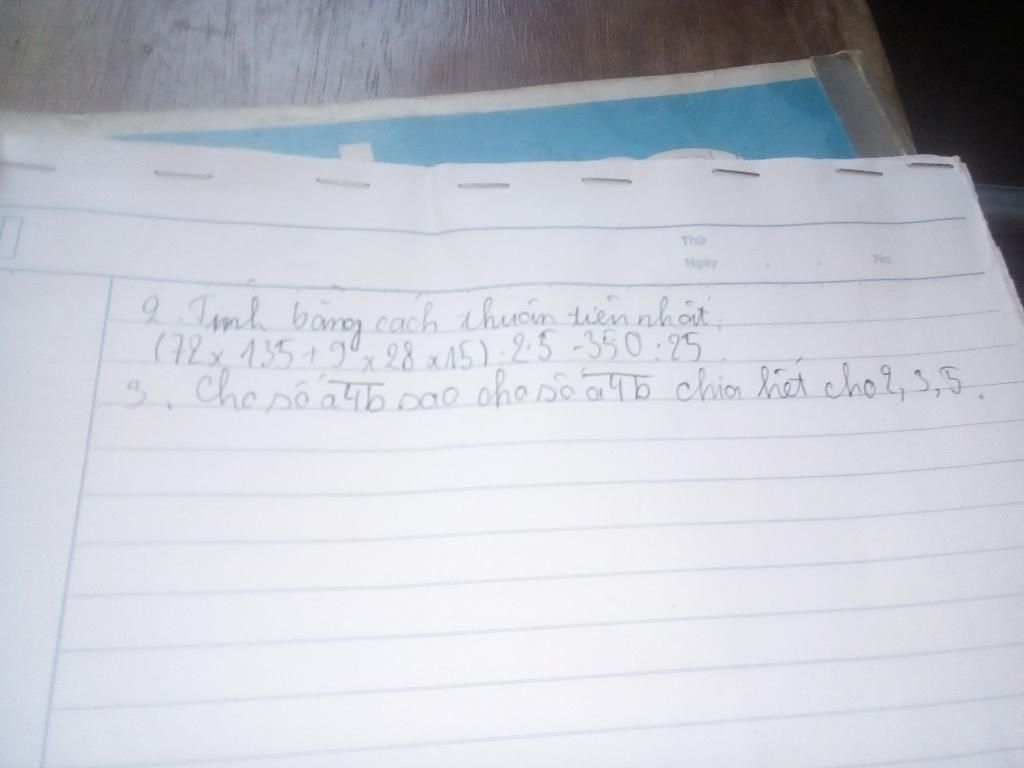 Thứ
Ngày . . No.
2. Tính bằng cách thuận tiện nhất:
(72 x 135 + 9 x 28 x 15) : 2.5 - 350 : 25.
3. Cho số a4b sao cho số a4b chia hết cho 2, 3, 5.